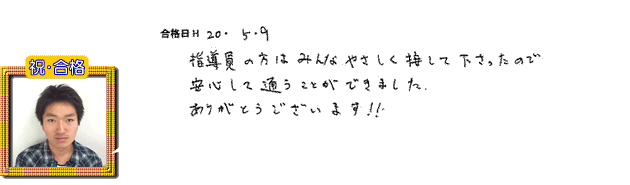 合格日H 20. 5.9
指導員の方はみんなやさしく接して下さったので
安心して通うことができました.
ありがとうございます!!
祝・合格